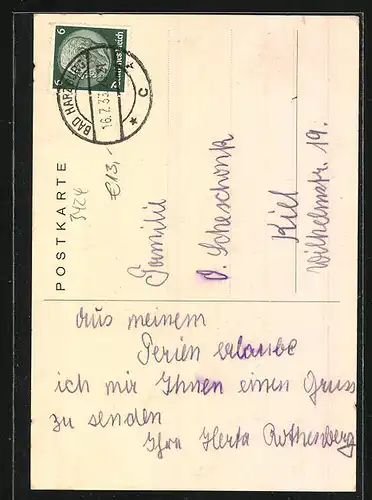 6
6
Deutsches Reich
BAD HARZBURG
16.7.33
* C
POSTKARTE
3424
€13,-
Familie
O. Scheschonk
Kiel
Wilhelmstr. 19.
Aus meinem
Ferien erlaube
ich mir Ihnen einen Gruss
zu senden
Ihre Herta Rothenberg